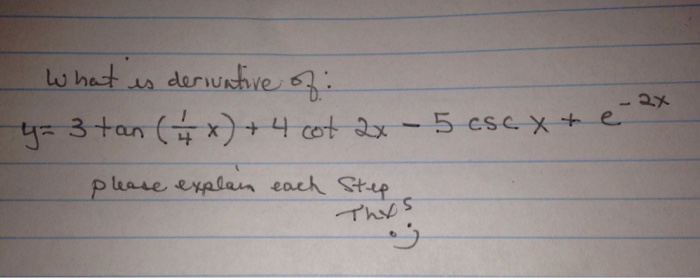 What is derivative of:
y= 3 tan (1/4 x) + 4 cot 2x - 5 csc x + e^-2x
please explain each step
Thxs
:)